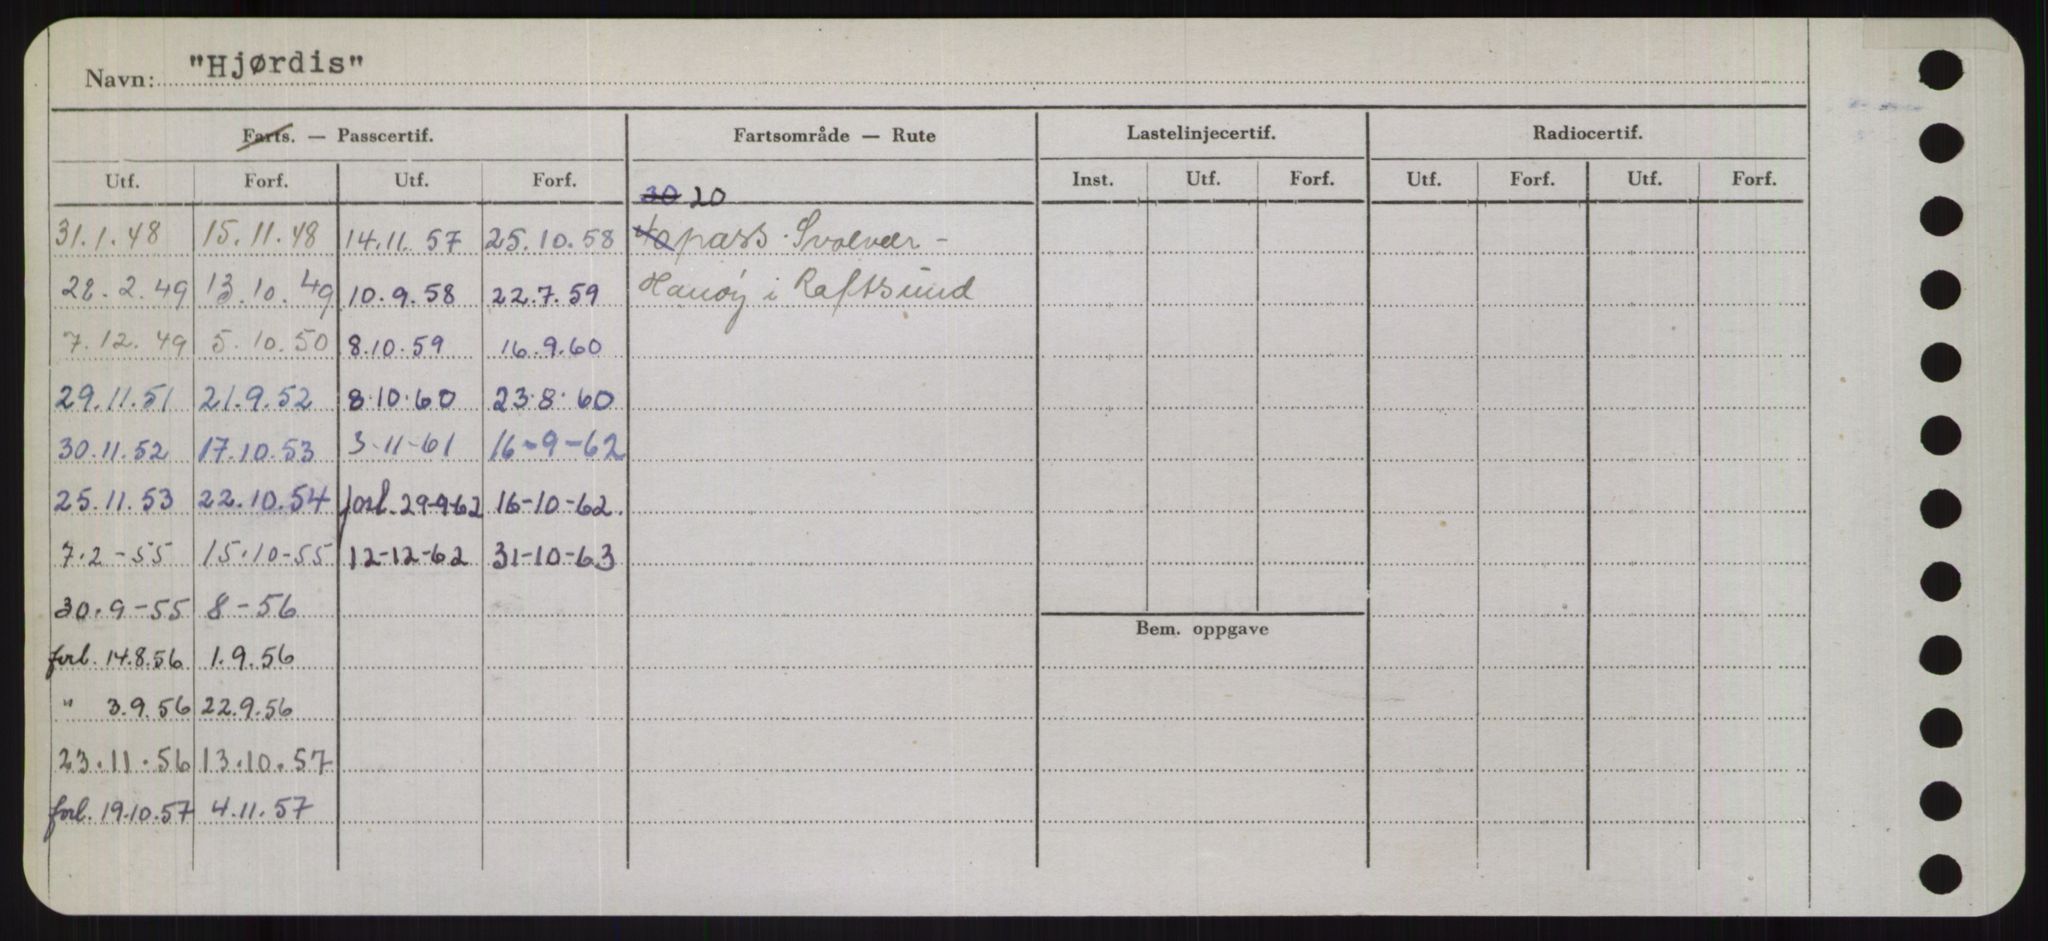 Navn: "Hjørdis"
Farts. — Passcertif. Fartsområde — Rute Lastelinjecertif. Radiocertif.
Utf. Forf. Utf. Forf. Inst. Utf. Forf. Utf. Forf. Utf. Forf.
30 20
31.1.48 15.11.48 14.11.57 25.10.58 40 pass. Svolvær -
28.2.49 13.10.49 10.9.58 22.7.59 Hanøy i Raftsund
7.12.49 5.10.50 8.10.59 16.9.60
29.11.51 21.9.52 8.10.60 23.8.60
30.11.52 17.10.53 3-11-61 16-9-62
25.11.53 22.10.54 forl. 29-9-62 16-10-62.
7.2-55 15.10-55 12-12-62 31-10-63
30.9-55 8-56
Bem. oppgave
forl. 14.8.56 1.9.56
" 3.9.56 22.9.56
23.11.56 13.10.57
forl. 19.10.57 4.11.57